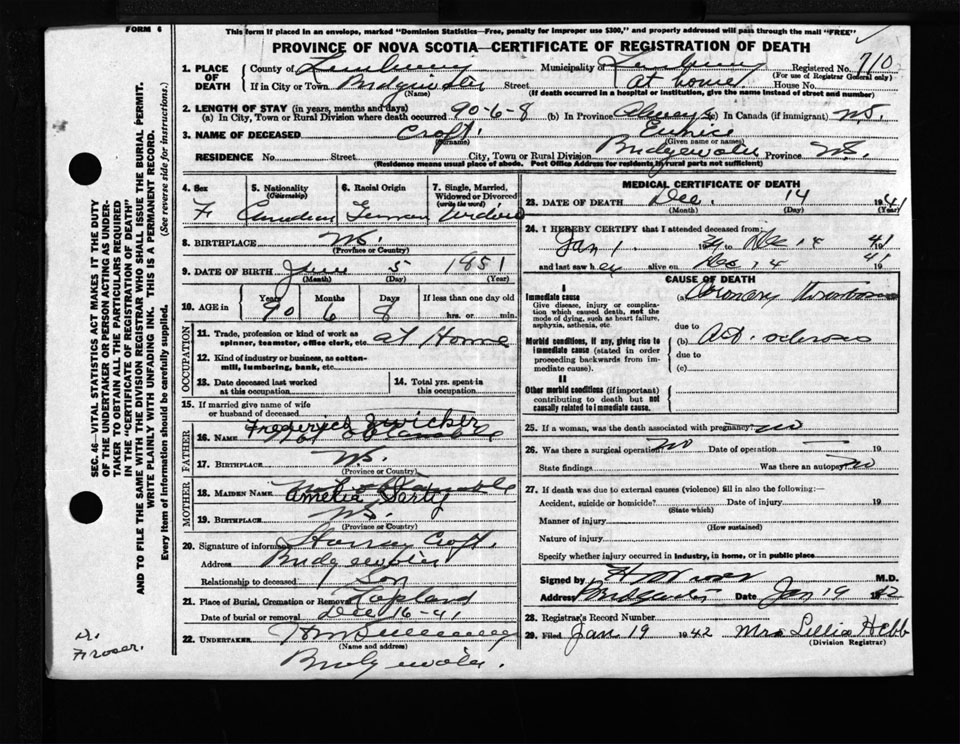 FORM 4
This form if placed in an envelope, marked "Dominion Statistics—Free, penalty for improper use $300," and properly addressed will pass through the mail "FREE"
PROVINCE OF NOVA SCOTIA—CERTIFICATE OF REGISTRATION OF DEATH
1. PLACE OF DEATH
County of Lunenburg Municipality of Registered No. 710
(For use of Registrar General only)
If in City or Town Bridgewater Street At home House No.
(Name) (If death occurred in a hospital or institution, give the name instead of street and number)
2. LENGTH OF STAY (in years, months and days)
(a) In City, Town or Rural Division where death occurred 90-6-8 (b) In Province Always (c) In Canada (if immigrant) N.S.
3. NAME OF DECEASED Croft. Eunice
(Surname) (Given name or names)
RESIDENCE No. Street City, Town or Rural Division Bridgewater Province N.S.
(Residence means usual place of abode. Post Office Address for residents in rural parts not sufficient)
4. Sex
F
5. Nationality (Citizenship)
Canadian
6. Racial Origin
German
7. Single, Married, Widowed or Divorced (write the word)
Widow
8. BIRTHPLACE N.S.
(Province or Country)
9. DATE OF BIRTH June 5 1851
(Month) (Day) (Year)
10. AGE in Years Months Days If less than one day old
90 6 8 hrs. or min.
OCCUPATION
11. Trade, profession or kind of work as spinner, teamster, office clerk, etc. at Home
12. Kind of industry or business, as cotton-mill, lumbering, bank, etc.
13. Date deceased last worked at this occupation
14. Total yrs. spent in this occupation
15. If married give name of wife or husband of deceased
FATHER
16. NAME Frederick Zwicker
Not obtainable
17. BIRTHPLACE N.S.
(Province or Country)
MOTHER
Not obtainable
18. MAIDEN NAME Amelia Sarty
19. BIRTHPLACE N.S.
(Province or Country)
20. Signature of informant Croft.
Address Bridgewater
Relationship to deceased Son
21. Place of Burial, Cremation or Removal Lapland
Date of burial or removal Dec 16-41
22. UNDERTAKER
(Name and address)
Bridgewater.
MEDICAL CERTIFICATE OF DEATH
23. DATE OF DEATH Dec. 14 1941
(Month) (Day) (Year)
24. I HEREBY CERTIFY that I attended deceased from:
Jan 1. 39 to Dec 14 1941
and last saw her alive on Dec 14 1941
CAUSE OF DEATH
I
Immediate cause
Give disease, injury or complication which caused death, not the mode of dying, such as heart failure, asphyxia, asthenia, etc.
(a) Coronary Thrombosis
due to
Morbid conditions, if any, giving rise to immediate cause (stated in order proceeding backwards from immediate cause).
(b) Art. sclerosis
due to
(c)
II
Other morbid conditions (if important) contributing to death but not causally related to immediate cause.
25. If a woman, was the death associated with pregnancy? no
26. Was there a surgical operation no Date of operation — 19
State findings Was there an autopsy no
27. If death was due to external causes (violence) fill in also the following:—
Accident, suicide or homicide? Date of injury 19
(State which)
Manner of injury
(How sustained)
Nature of injury
Specify whether injury occurred in industry, in home, or in public place
Signed by M.D.
Address Bridgewater Date Jan 19 1942
28. Registrar's Record Number
29. Filed Jan 19 1942 Mrs Lillia Hebb
(Division Registrar)
SEC. 46—VITAL STATISTICS ACT MAKES IT THE DUTY
OF THE UNDERTAKER OR PERSON ACTING AS UNDER-
TAKER TO OBTAIN ALL THE PARTICULARS REQUIRED
IN THE "CERTIFICATE OF REGISTRATION OF DEATH"
AND TO FILE THE SAME WITH THE DIVISION REGISTRAR WHO SHALL ISSUE THE BURIAL PERMIT.
WRITE PLAINLY WITH UNFADING INK. THIS IS A PERMANENT RECORD.
Every item of information should be carefully supplied. (See reverse side for instructions.)
Dr.
Froser.